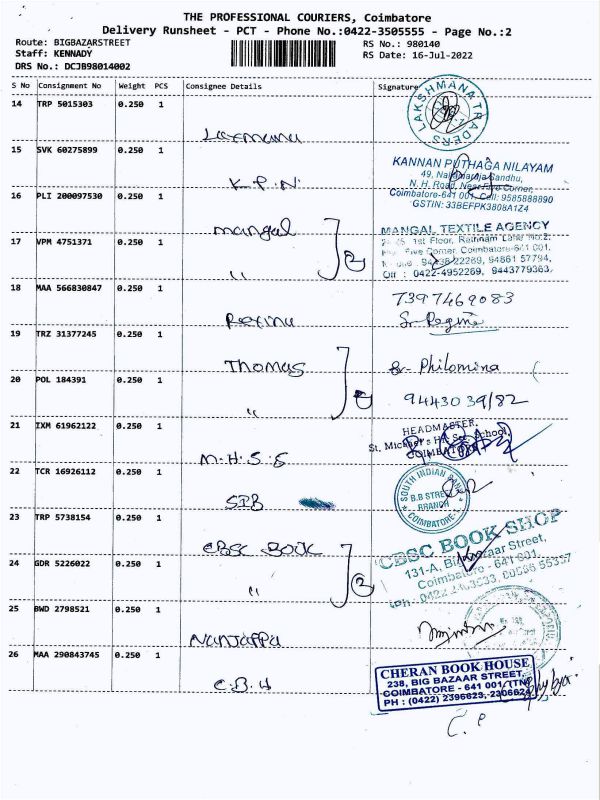 THE PROFESSIONAL COURIERS, Coimbatore
Delivery Runsheet - PCT - Phone No.:0422-3505555 - Page No.:2
Route: BIGBAZARSTREET
Staff: KENNADY
DRS No.: DCJB98014002
RS No.: 980140
RS Date: 16-Jul-2022
S No Consignment No Weight PCS Consignee Details Signature
14 TRP 5015303 0.250 1
Laxmana
LAKSHMANA TRADERS
15 SVK 60275899 0.250 1
K.P.N.
KANNAN PUTHAGA NILAYAM
49, Nallamaraja Sandhu,
N. H. Road, Near Five Corner,
Coimbatore-641 001. Cell: 9585888890
GSTIN: 33BEFPK3808A1Z4
16 PLI 200097530 0.250 1
mangal
MANGAL TEXTILE AGENCY
1st Floor, Rathnam Lane No.2,
Five Corner, Coimbatore-641 001.
94438 22269, 94861 57794,
Off : 0422-4952269, 9443779363
17 VPM 4751371 0.250 1
"
2
18 MAA 566830847 0.250 1
Regina
7397469083
Sr Regina
19 TRZ 31377245 0.250 1
Thomas
Sr. Philomina
20 POL 184391 0.250 1
"
2
9443039182
21 IXM 61962122 0.250 1
M.H.S.S
HEADMASTER,
St. Michael's Hr. Sec. School,
COIMBATORE
22 TCR 16926112 0.250 1
SIB
SOUTH INDIAN BANK
B.B STREET
BRANCH
COIMBATORE
23 TRP 5738154 0.250 1
CBSC BOOK
CBSC BOOK SHOP
131-A, Big Bazaar Street,
Coimbatore - 641 001.
24 GDR 5226022 0.250 1
"
2
25 BWD 2798521 0.250 1
Nanjappa
26 MAA 290843745 0.250 1
C.B.H
CHERAN BOOK HOUSE
238, BIG BAZAAR STREET,
COIMBATORE - 641 001. (TN)
PH : (0422) 2396623, 2306624